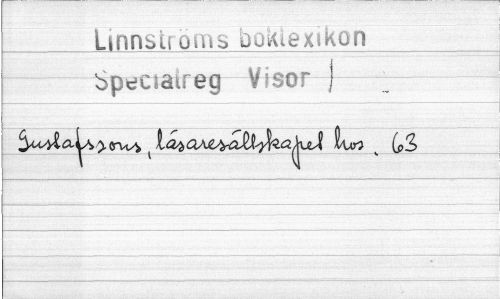 Linnströms boklexikon
Specialreg Visor )
Gustafssons, läsaresällskapet hos. 63